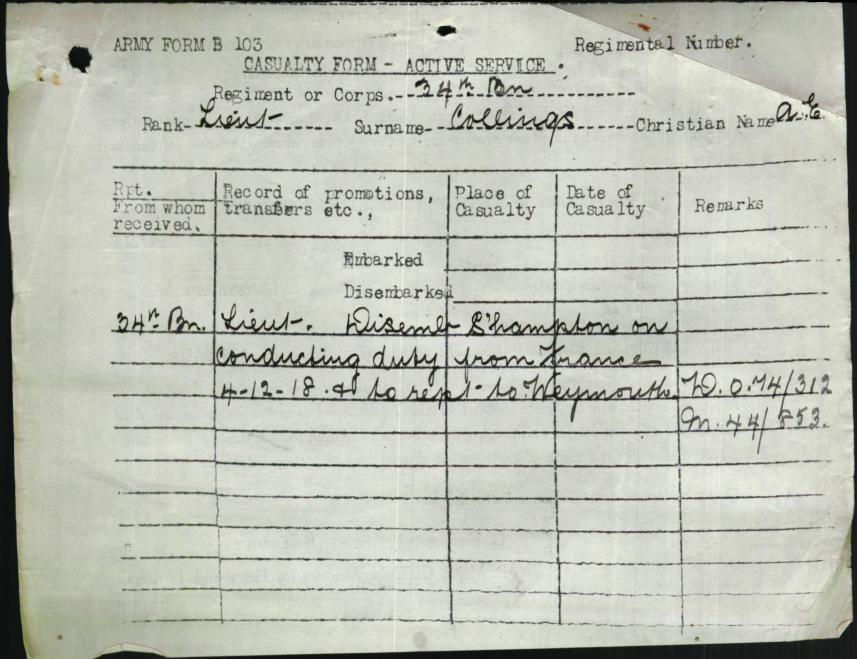 ARMY FORM B 103 Regimental Number.
CASUALTY FORM - ACTIVE SERVICE.
Regiment or Corps. 34th Bn
Rank- Lieut Surname- Collings Christian Name A.E.
Rpt. From whom received. Record of promotions, transfers etc., Place of Casualty Date of Casualty Remarks
Embarked
Disembarked
34th Bn. Lieut. Disemb S'hampton on
conducting duty from France
4-12-18 & to rept to Weymouth. W.O.74/312
M.44/853.